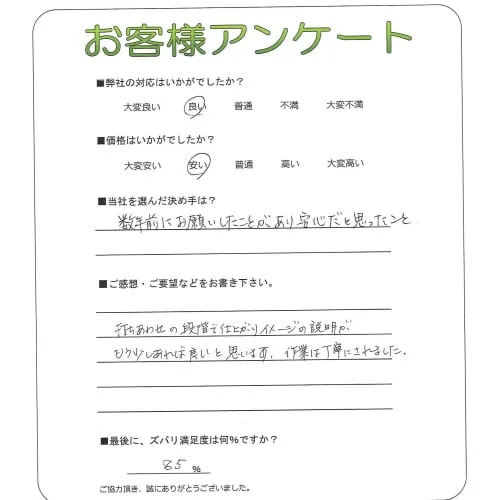 お客様アンケート
■弊社の対応はいかがでしたか？
大変良い 良い 普通 不満 大変不満
■価格はいかがでしたか？
大変安い 安い 普通 高い 大変高い
■当社を選んだ決め手は？
数年前にお願いしたことがあり安心だと思ったこと
■ご感想・ご要望などをお書き下さい。
打ちあわせの段階で仕上がりイメージの説明が
もう少しあれば良いと思います。作業は丁寧にされました。
■最後に、ズバリ満足度は何％ですか？
85 %
ご協力頂き、誠にありがとうございました。